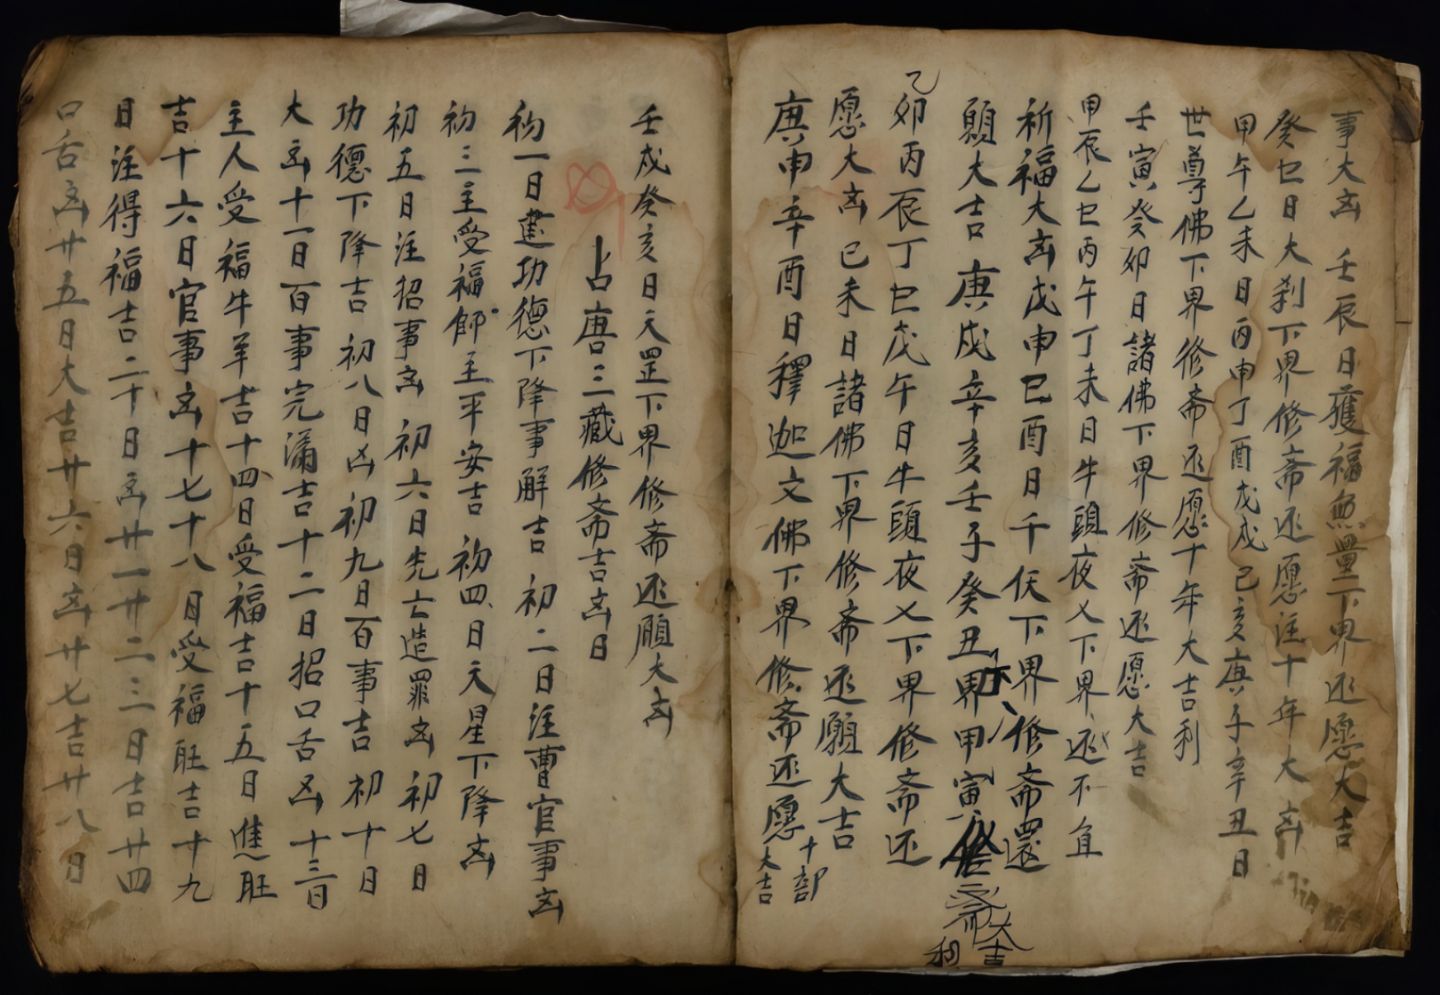 事大凶 壬辰日獲福無量下界还愿大吉
癸巳日大刹下界修斋还愿注十年大凶
甲午乙未日丙申丁酉戊戌己亥庚子辛丑日
世尊佛下界修斋还愿十年大吉利
壬寅癸卯日諸佛下界修斋还愿大吉
甲辰乙巳丙午丁未日牛頭夜乂下界还不宜
祈福大凶戊申已酉日千佛下界修斋還
願大吉庚戌辛亥壬子癸丑下界甲寅修斋大吉利
乙卯丙辰丁巳戊午日牛頭夜乂下界修斋还
愿大凶已未日諸佛下界修斋还願大吉
庚申辛酉日釋迦文佛下界修斋还愿十部大吉
壬戌癸亥日天罡下界修斋还願大凶
占唐三藏修斋吉凶日
初一日建功德下降事解吉 初二日注曹官事凶
初三主受福師主平安吉 初四日天星下降凶
初五日注招事凶 初六日先亡造罪凶 初七日
功德下降吉 初八日凶 初九日百事吉 初十日
大凶十一日百事完滿吉十二日招口舌凶十三日
主人受福牛羊吉十四日受福吉十五日進旺
吉十六日官事凶十七十八日受福旺吉十九
日注得福吉二十日凶廿一廿二三日吉廿四
口舌凶廿五日大吉廿六日凶廿七吉廿八日